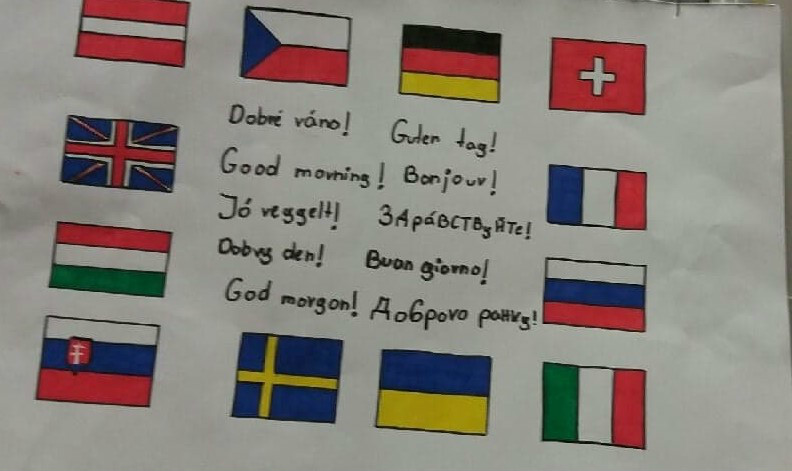 Dobré váno! Guten tag!
Good morning! Bonjour!
Jó reggelt! ЗДраВСТВуйте!
Dobrý den! Buon giorno!
God morgon! Доброго ранку!